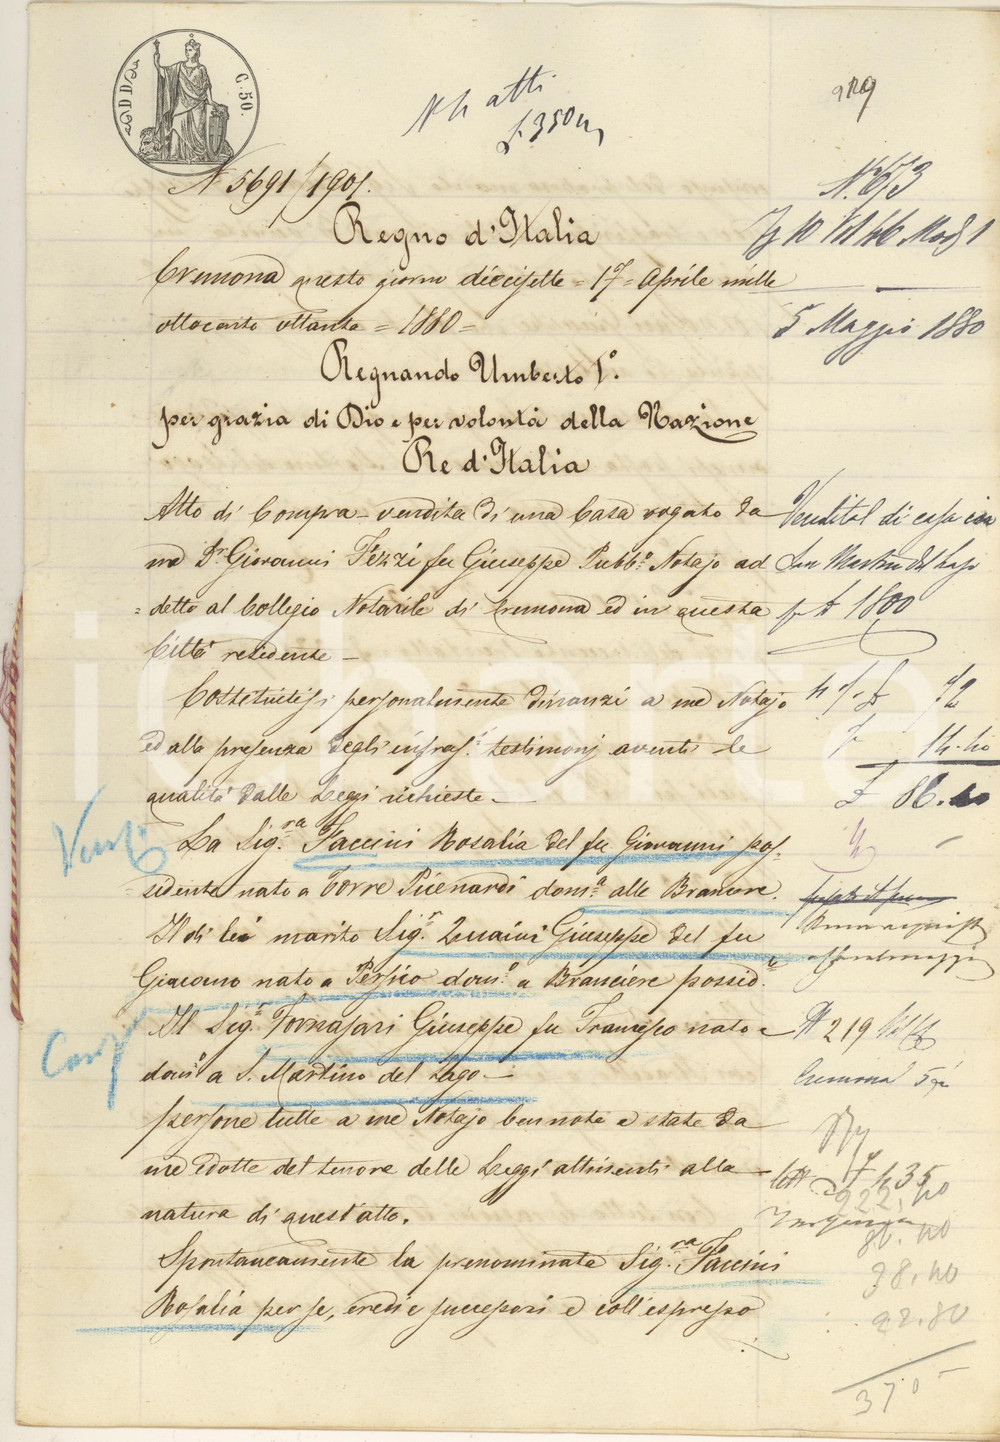 C. 50.
N. 5691/1901.
Regno d'Italia
Cremona questo giorno diecisette = 17 = Aprile mille
ottocento ottanta = 1880 =
Regnando Umberto I.°
per grazia di Dio e per volontà della Nazione
Re d'Italia
Atto di Compra-vendita di una Casa rogato da
me Dr. Giovanni Fezzi fu Giuseppe Pubb.° Notajo ad
=detto al Collegio Notarile di Cremona ed in questa
Città residente —
Costituitisi personalmente dinanzi a me Notajo
ed alla presenza degli infras.ti testimonj aventi le
qualità dalle Leggi richieste. —
La Sig.ra Faccini Rosalia del fu Giovanni pos-
sidente nata a Torre Picenardi dom.a alle Brancere.
Il di lei marito Sig.r Quaini Giuseppe del fu
Giacomo nato a Persico dom.o a Brancere possid.e
Il Sig.r Fornasari Giuseppe fu Francesco nato e
dom.o a S. Martino del Lago —
persone tutte a me Notajo ben note e state da
me edotte del tenore delle Leggi attinenti alla
natura di quest'atto.
Spontaneamente la prenominata Sig.ra Faccini
Rosalia per se, eredi e successori e coll'espresso
atti
£ 350
N. 673
5 Maggio 1880
Vendita di casa in
San Martino del Lago
1800
72
14.40
£ 86.40
N 219
Cremona
922,40
86.40
38,40
22.80
370